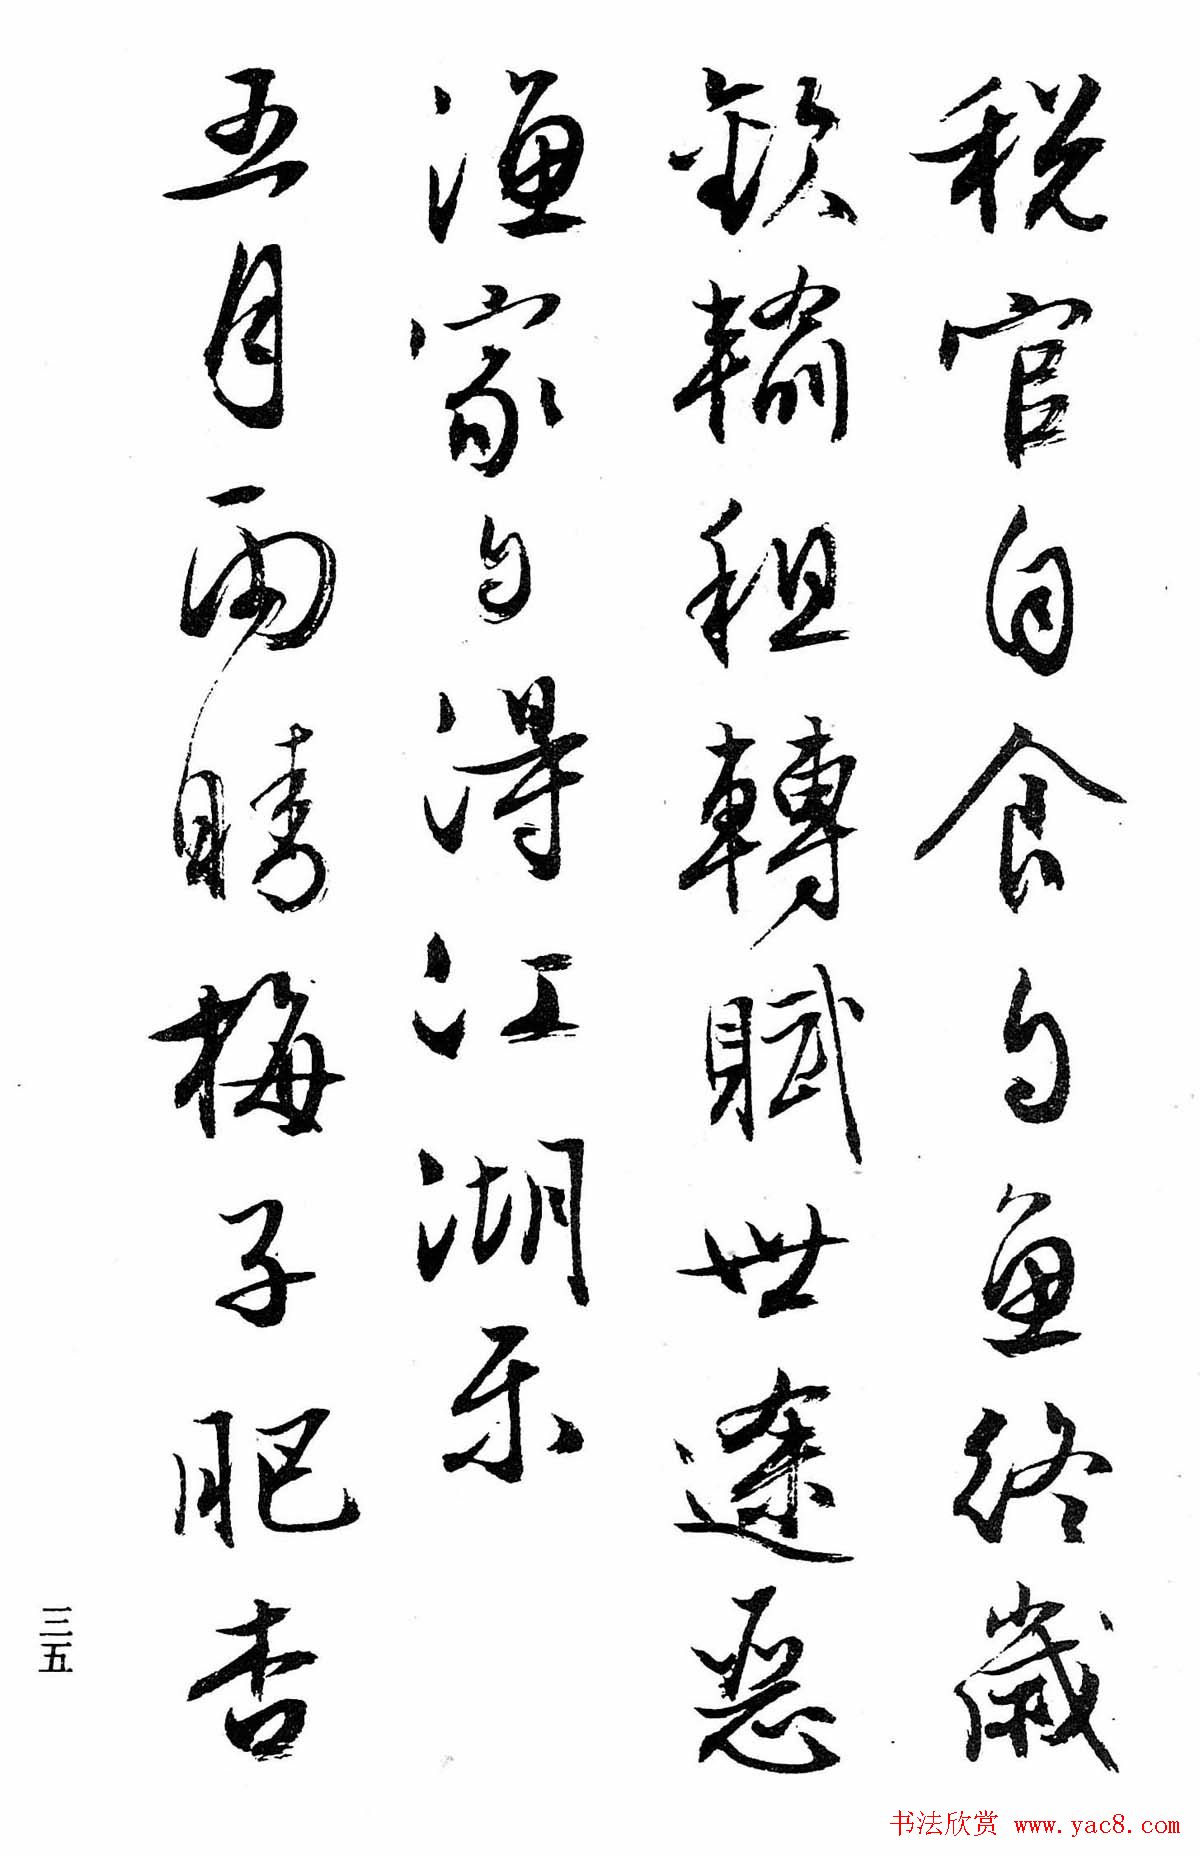 税官自食鱼終歲
輸租轉賦世途惡
漁家得江湖乐
五月雨晴梅子肥杏
三五
书法欣赏 www.yac8.com